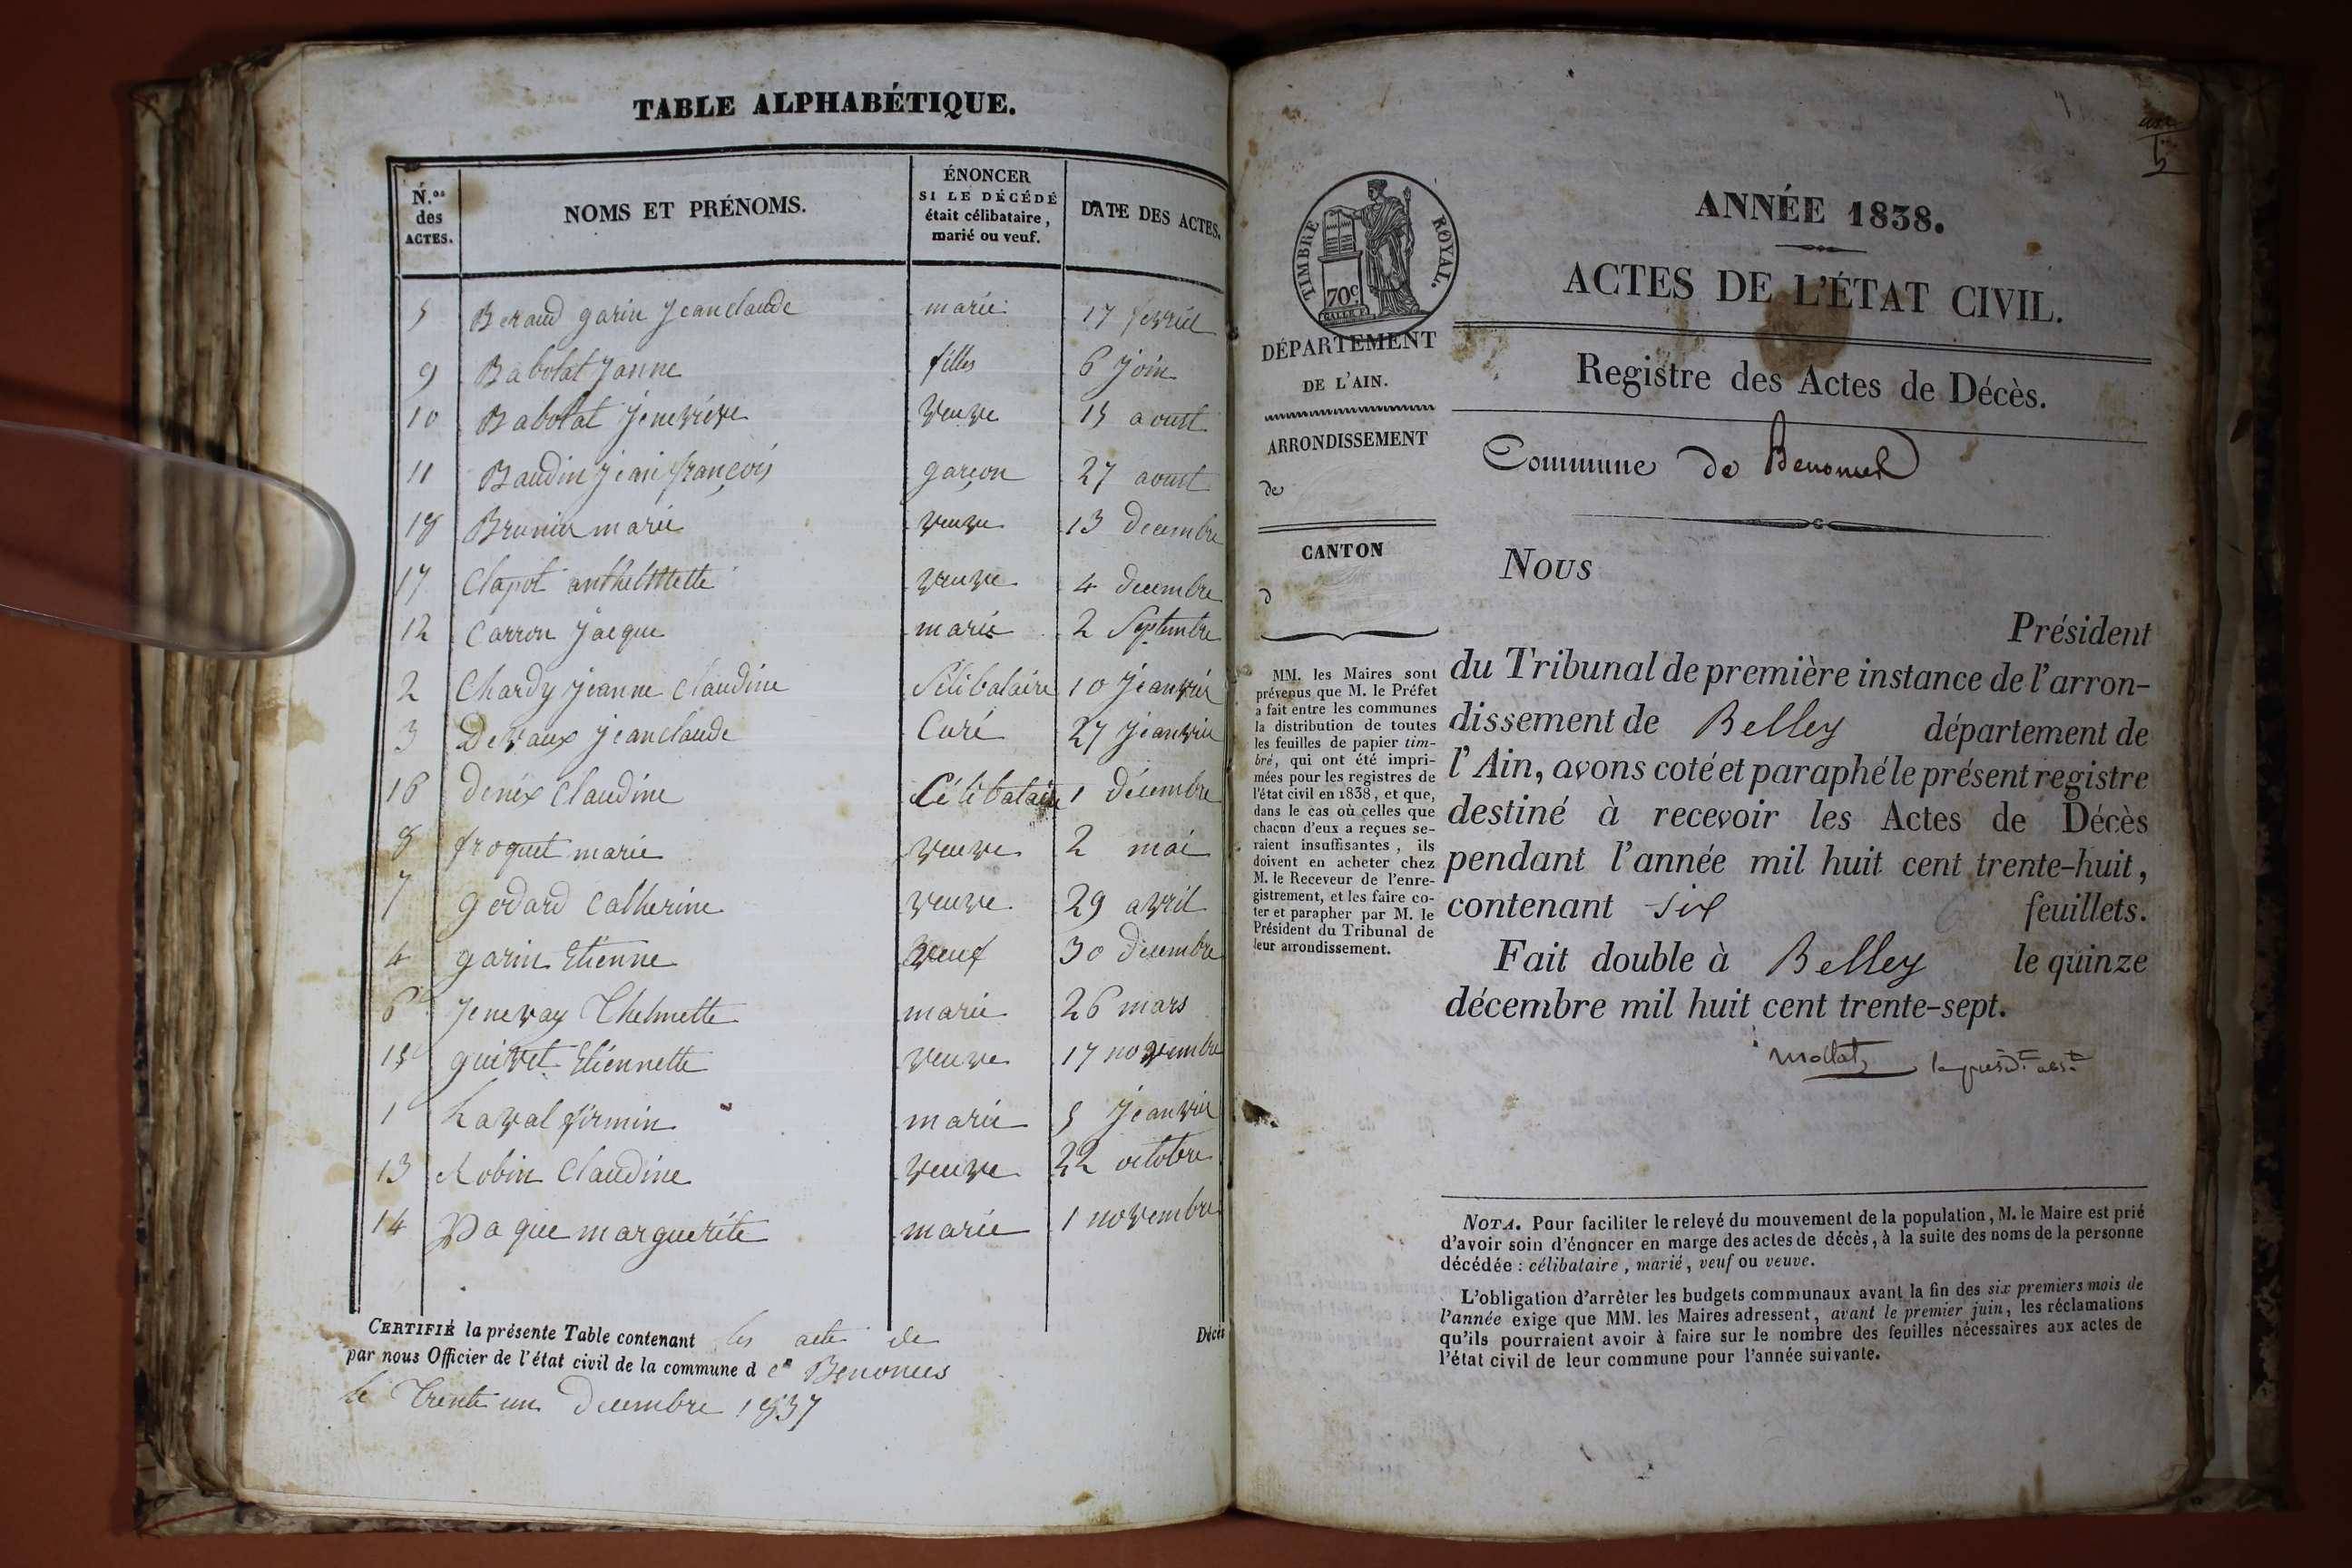 TABLE ALPHABÉTIQUE.
N.os des ACTES.
NOMS ET PRÉNOMS.
ÉNONCER SI LE DÉCÉDÉ était célibataire, marié ou veuf.
DATE DES ACTES.
5 Beraud garin Jean claude marié 17 fevriel
9 Babolat Janne filles 6 Join
10 Babolat Jenevieve veuve 15 aoust
11 Baudin Jean françois garçon 27 aoust
18 Brunier marie veuve 13 decembre
17 Clapot anthelmette veuve 4 decembre
12 Carron Jacque marié 2 Septembre
2 Chardy Jeanne Claudine Sélibataire 10 Jeanvier
3 Devaux Jean claude Curé 27 Jeanvier
16 denix Claudine Célibataire 1 décembre
8 froquet marie veuve 2 mai
7 godard Catherine veuve 29 avril
4 garin Etienne veuf 30 decembre
6 Jenevay Thelmette marié 26 mars
15 guivet Etiennette veuve 17 novembre
1 Laval firmin marié 5 Jeanvier
13 Robin Claudine veuve 22 octobre
14 Paque marguerite marié 1 novembre
CERTIFIÉ la présente Table contenant les acte de Décès
par nous Officier de l'état civil de la commune de Benonces
le Trente un Decembre 1837
TIMBRE ROYAL.
70c
DÉPARTEMENT
DE L'AIN.
ARRONDISSEMENT
de
CANTON
d
MM. les Maires sont
prévenus que M. le Préfet
a fait entre les communes
la distribution de toutes
les feuilles de papier tim-
bré, qui ont été impri-
mées pour les registres de
l'état civil en 1838, et que,
dans le cas où celles que
chacun d'eux a reçues se-
raient insuffisantes, ils
doivent en acheter chez
M. le Receveur de l'enre-
gistrement, et les faire co-
ter et parapher par M. le
Président du Tribunal de
leur arrondissement.
ANNÉE 1838.
ACTES DE L'ÉTAT CIVIL.
Registre des Actes de Décès.
Commune de Benonces
Nous
Président
du Tribunal de première instance de l'arron-
dissement de Belley département de
l'Ain, avons coté et paraphé le présent registre
destiné à recevoir les Actes de Décès
pendant l'année mil huit cent trente-huit,
contenant six feuillets.
Fait double à Belley le quinze
décembre mil huit cent trente-sept.
Mollat
NOTA. Pour faciliter le relevé du mouvement de la population, M. le Maire est prié
d'avoir soin d'énoncer en marge des actes de décès, à la suite des noms de la personne
décédée : célibataire, marié, veuf ou veuve.
L'obligation d'arrêter les budgets communaux avant la fin des six premiers mois de
l'année exige que MM. les Maires adressent, avant le premier juin, les réclamations
qu'ils pourraient avoir à faire sur le nombre des feuilles nécessaires aux actes de
l'état civil de leur commune pour l'année suivante.